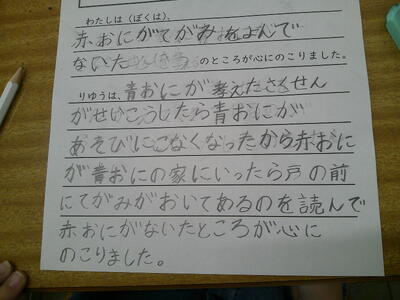 わたしは（ぼくは）、
赤おにがてがみをよんで
ないた のところが心にのこりました。
りゆうは、青おにが考えたさくせん
がせいこうしたら青おにが
あそびにこなくなったから赤おに
が青おにの家にいったら戸の前
にてがみがおいてあるのを読んで
赤おにがないたところが心に
のこりました。